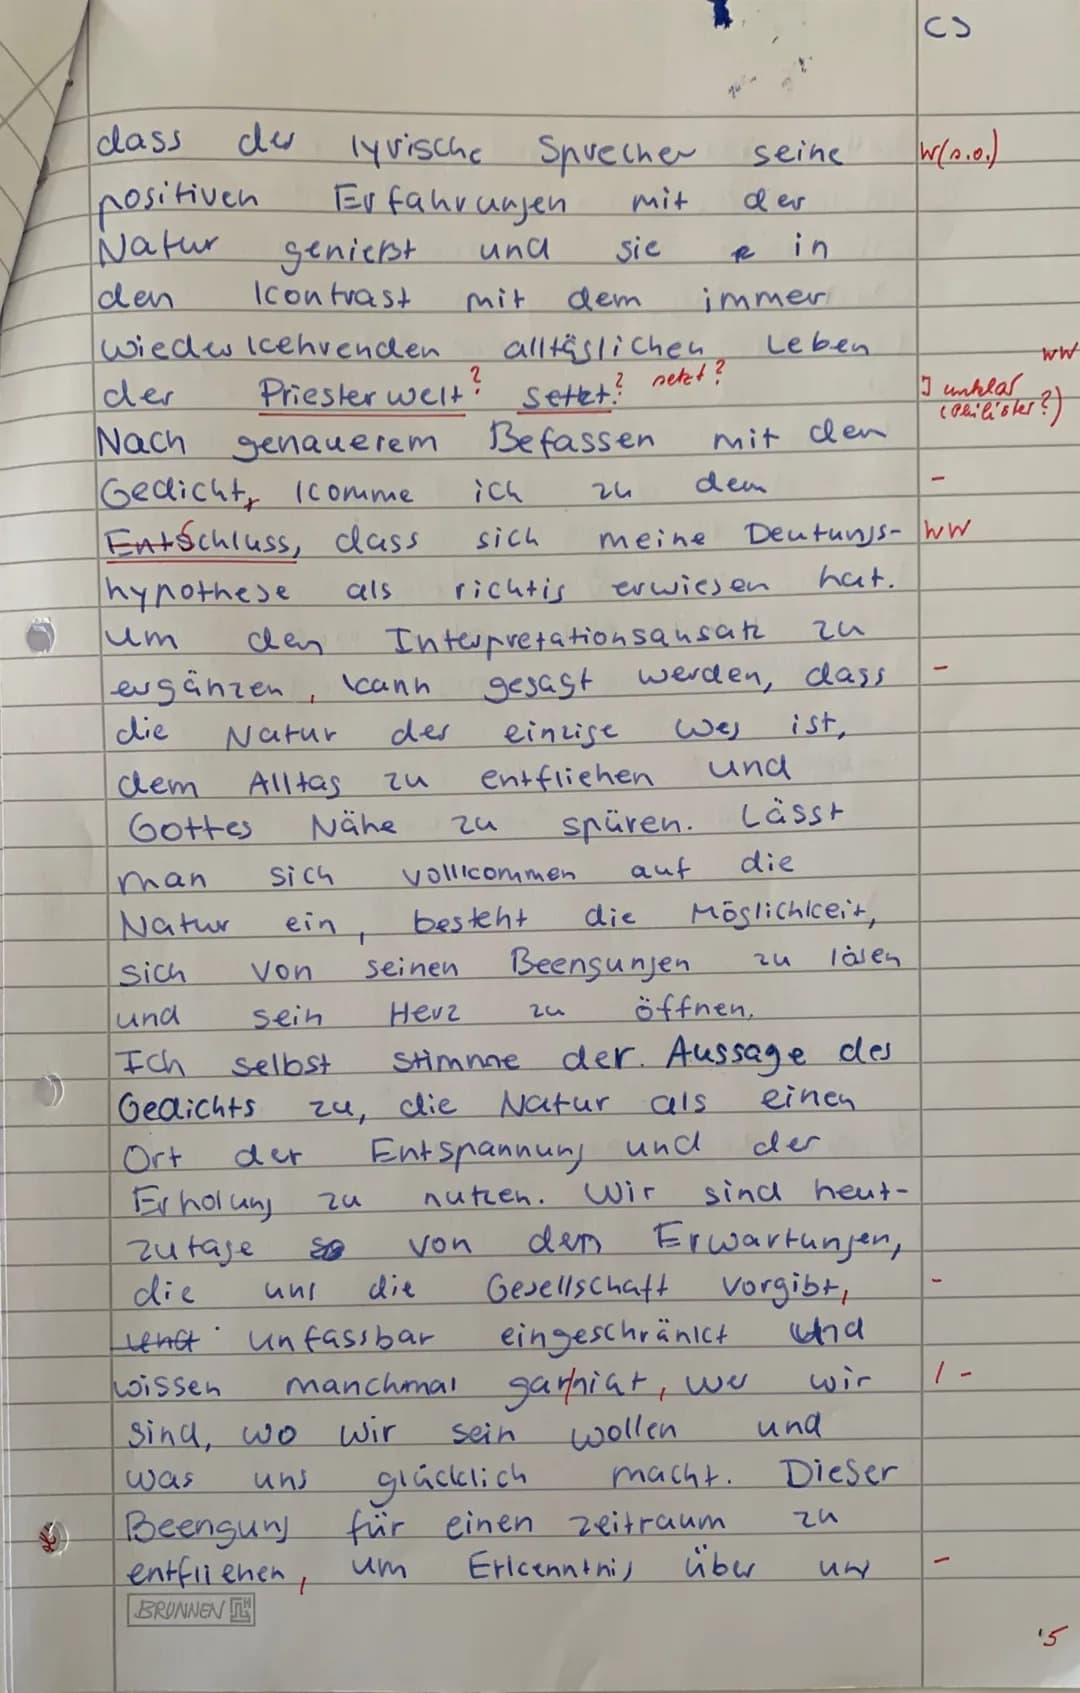 CJ
dass der lyrische Sprecher seine W(s.o.)
positiven Erfahrungen mit der
Natur genießt und sie in
den Kontrast mit dem immer
wiederkehrenden alltäglichen Leben
der Priesterwelt? setzt? setzt? WW
I unklar
(Philister?)
Nach genauerem Befassen mit dem
Gedicht, komme ich zu dem -
Entschluss, dass sich meine Deutungs- WW
hypothese als richtig erwiesen hat.
Um den Interpretationsansatz zu
ergänzen, kann gesagt werden, dass -
die Natur der einzige Weg ist,
dem Alltag zu entfliehen und
Gottes Nähe zu spüren. Lässt
man sich vollkommen auf die
Natur ein, besteht die Möglichkeit,
sich von seinen Beengungen zu lösen
und sein Herz zu öffnen.
Ich selbst stimme der Aussage des
Gedichts zu, die Natur als einen
Ort der Entspannung und der
Erholung zu nutzen. Wir sind heut-
zutage so von den Erwartungen,
die uns die Gesellschaft vorgibt, -
und unfassbar eingeschränkt und
wissen manchmal gar/nicht, wer wir / -
sind, wo wir sein wollen und
was uns glücklich macht. Dieser
Beengung für einen Zeitraum zu
entfliehen, um Erkenntnis über uns -
BRUNNEN
'5